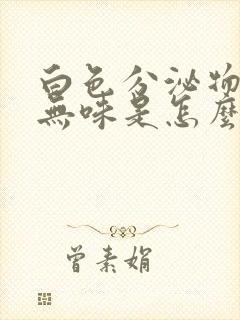 白色分泌物
無味是怎麼
曾素娟